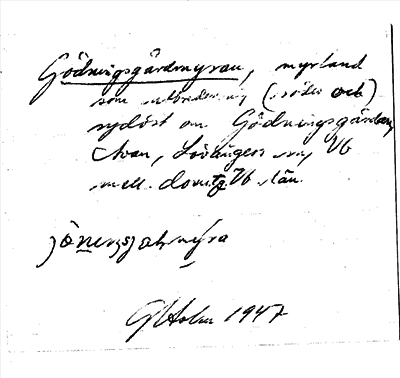 Gödningsgårdmyran, myrland
som utbreder sig (söder och
sydöst om Gödningsgården,
Avan, Lövångers sn, Vb
mell. domsg. Vb. län.
G Holm 1947